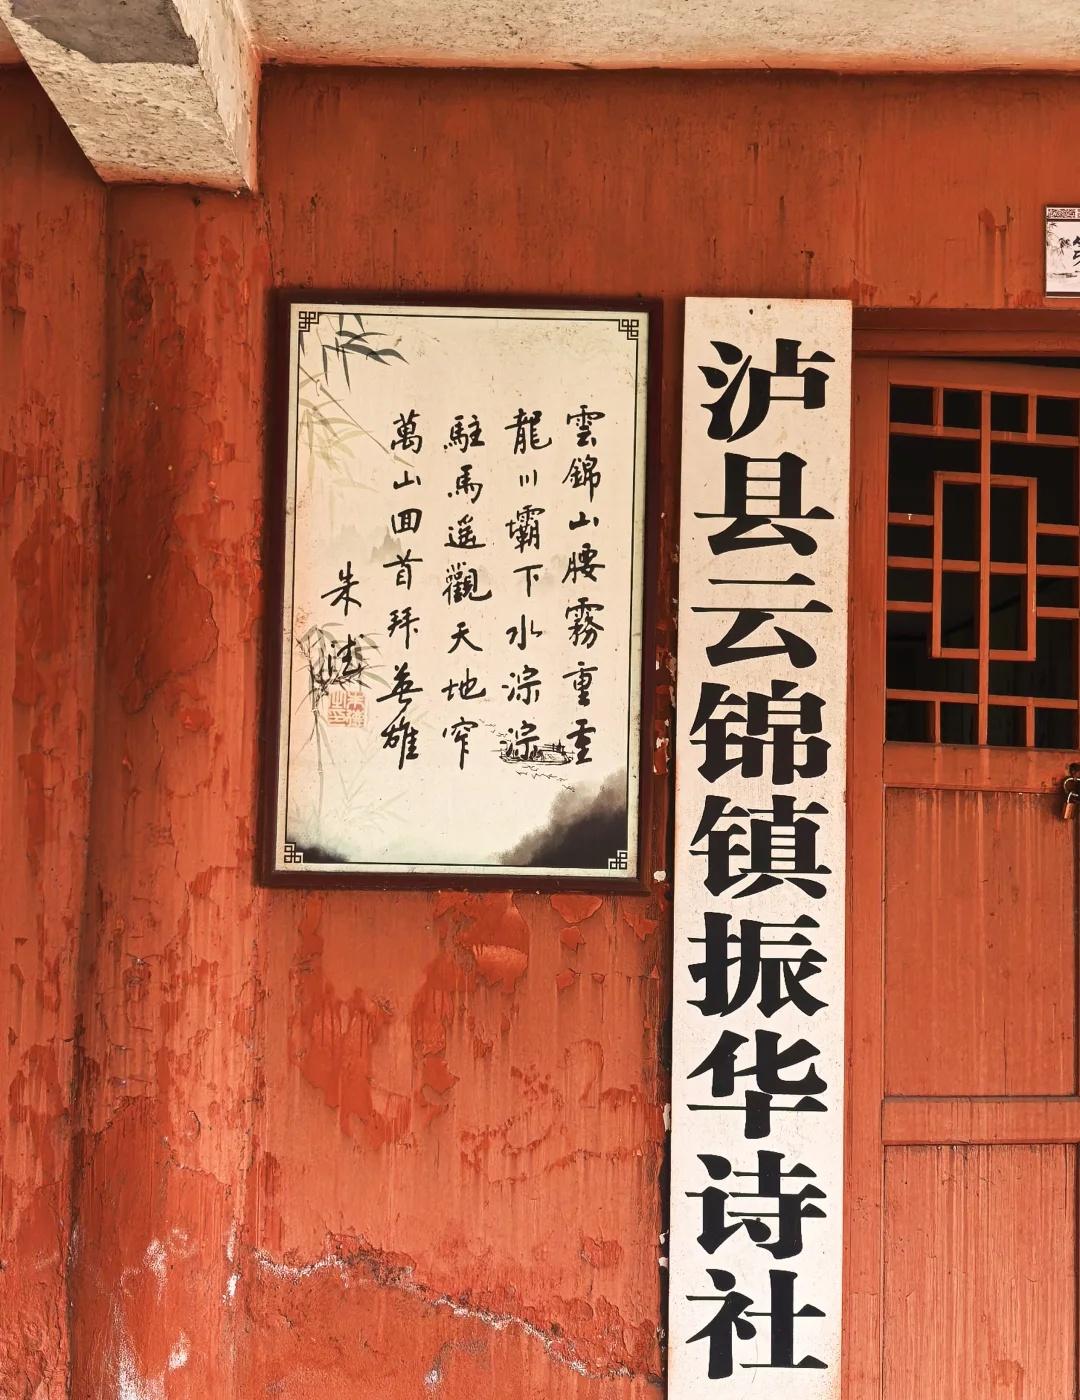 泸县云锦镇振华诗社
雲錦山腰霧重重
龍川壩下水淙淙
駐馬遥觀天地窄
萬山囬首拜英雄
朱